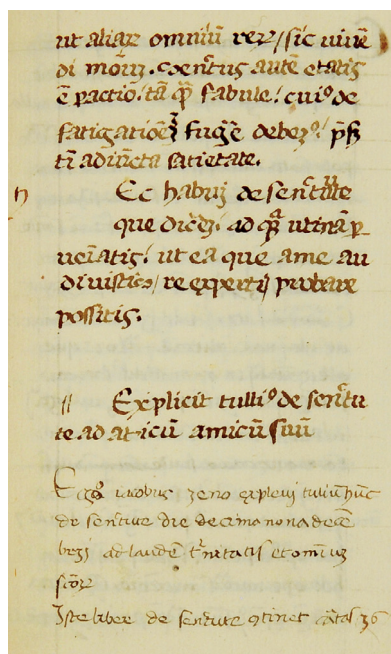 ut aliar̃ omniũ rer̃ / sic uiuẽ
di moduʒ. Senẽtus autẽ etatis
ẽ ꝑactio. tã q̃ȝ fabule: cuiꝰ de
fatigatiõeȝ fugẽ debemꝰ: p̃ser
tĩ adiũcta satietate.
Ec habui de senẽtute
que dicẽ. ad q̃ȝ utinã ꝑ
ueniatis: ut ea que a me au
diuistis / re experti probare
possitis.
Explicit tulliꝰ de senẽtu
te ad aticũ amicũ suũ
Ego iacobus zeno expleui tuliũ hũc
de senẽtute die decimo nona decẽ
bris ad laudẽ t̃nitatis et omniuȝ
sc̃oȝ
Iste liber de senẽtute ꝯtinet cartas 36